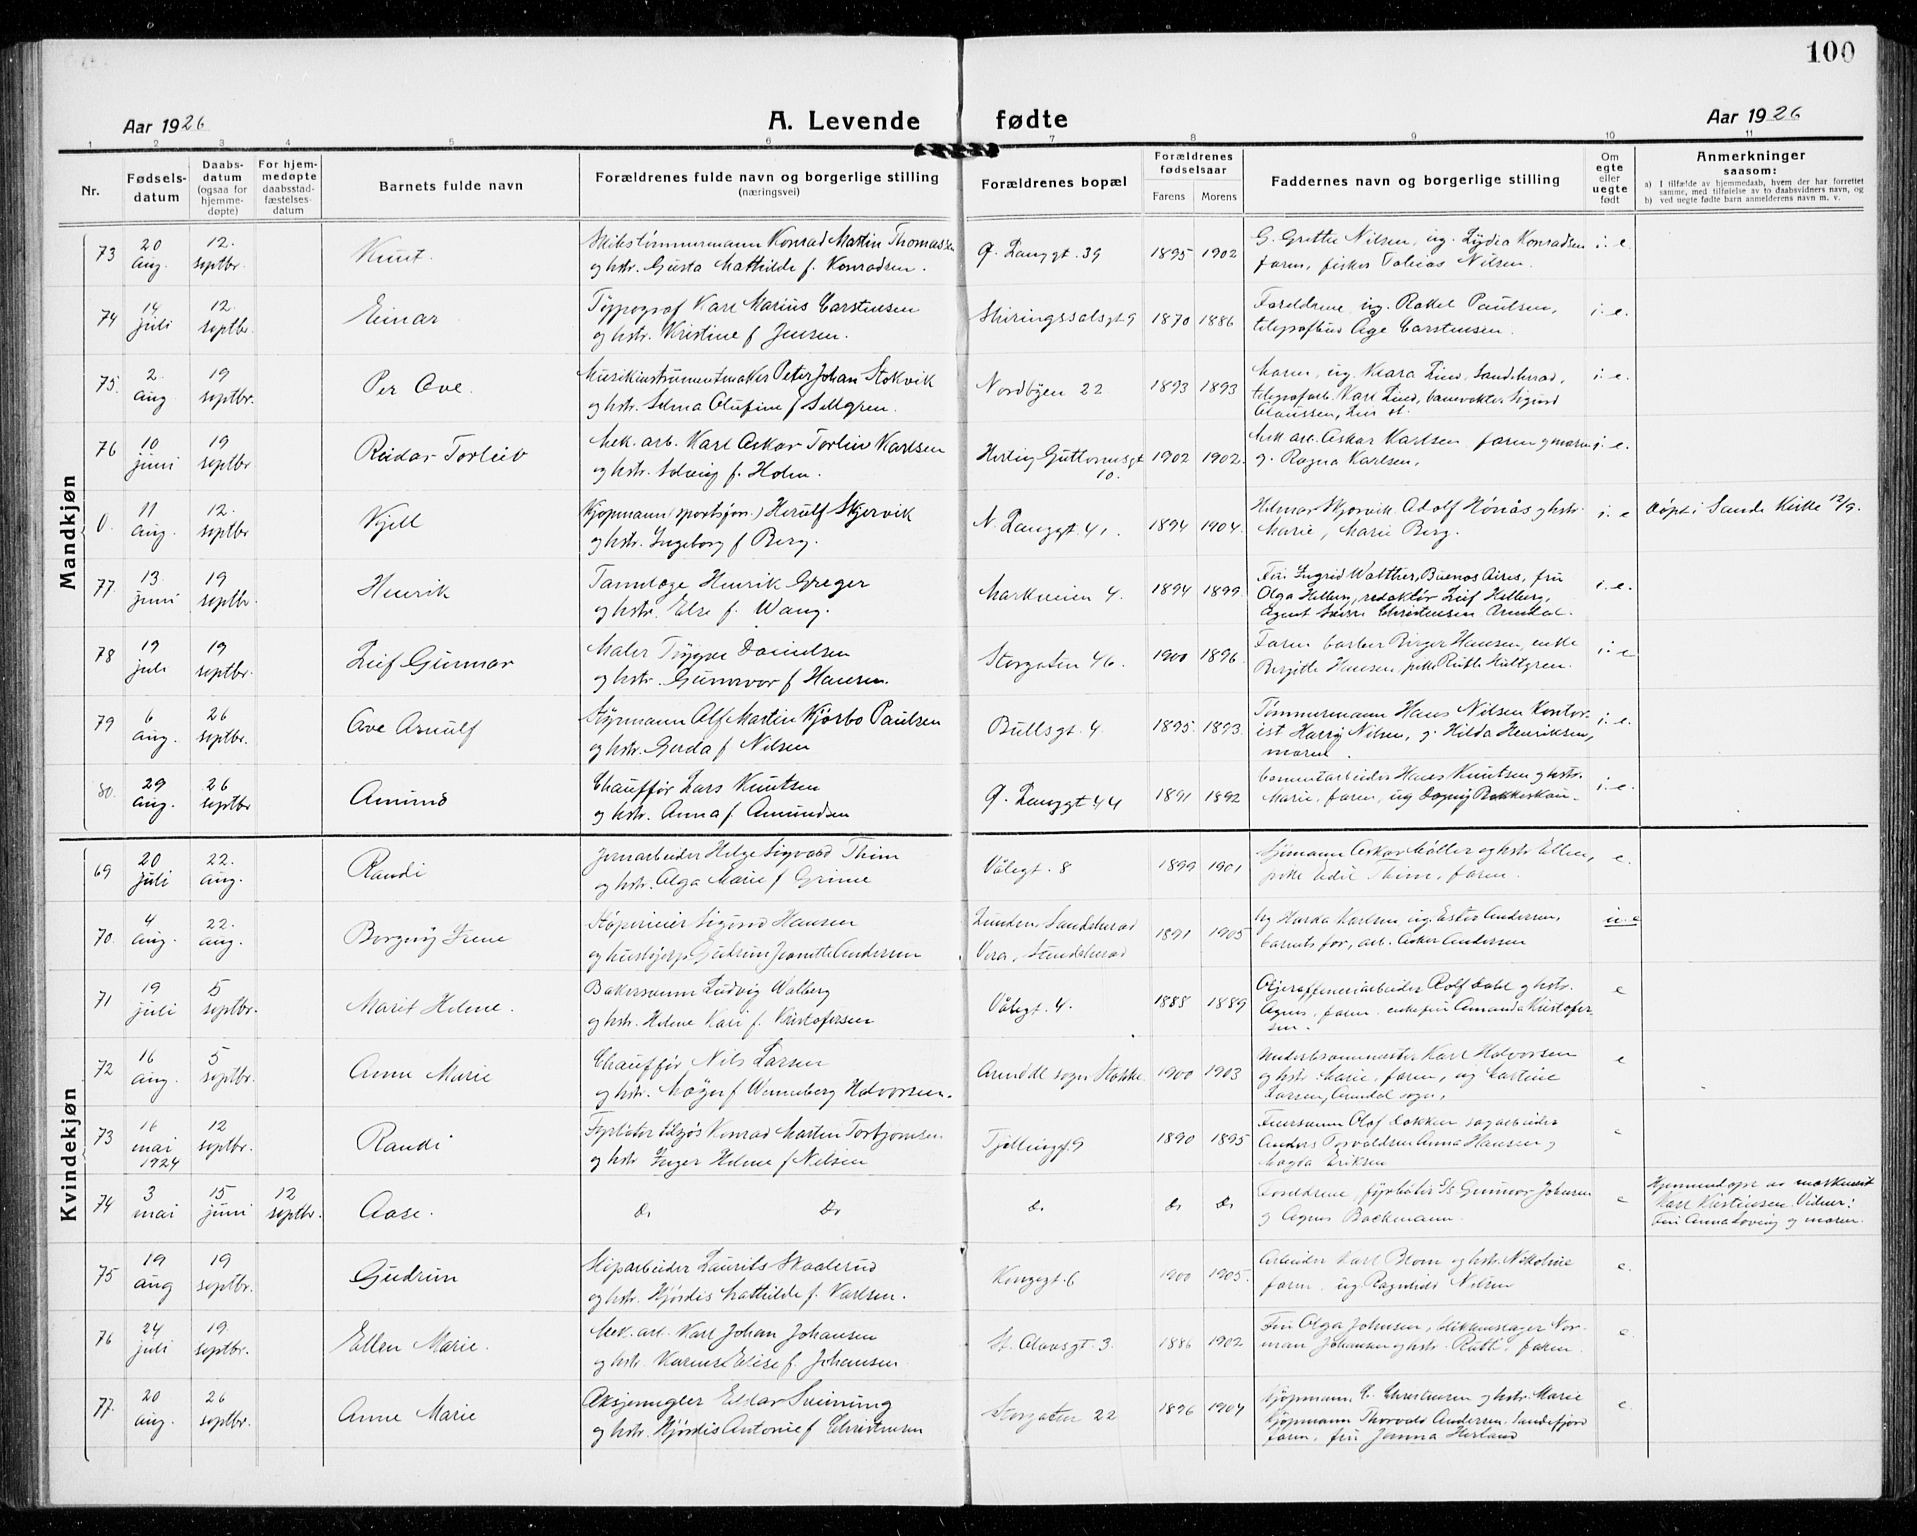 100
Aar 1926 A. Levende fødte Aar 1926
1 2 3 4 5 6 7 8 9 10 11
Nr.
Fødsels-
datum
Daabs-
datum
(ogsaa for
hjemme-
døpte)
For hjem-
medøpte
daabsstad-
fæstelses-
datum
Barnets fulde navn
Forældrenes fulde navn og borgerlige stilling
(næringsvei)
Forældrenes bopæl
Forældrenes
fødselsaar
Farens Morens
Faddernes navn og borgerlige stilling
Om
egte
eller
uegte
født
Anmerkninger
saasom:
a) I tilfælde av hjemmedaab, hvem der har forrettet
samme, med tilføielse av to daabsvidners navn, og
b) ved uegte fødte barn anmelderens navn m. v.
Mandkjøn
73 20 aug. 12. septbr. Knut.
Skibstømmermann Konrad Martin Thomassen
og hstr. Gusta Mathilde f. Konradsen.
Ø. Langgt. 39 1895 1902
G. Grethe Nilsen, ug. Lydia Konradsen
faren, fisker Tobias Nilsen. i. e.
74 14 juli 12. septbr. Einar
Typograf Karl Marius Carstensen
og hstr. Kristine f Jensen.
Skiringssalsgt 9 1870 1886
Foreldrene, ug. Rakel Paulsen,
telegrafbud Åge Carstensen. i. e.
75 2. aug 19 septbr. Per Ove.
Musikinstrumentmaker Peter Johan Stokvik
og hstr. Selma Olufine f Sellgren.
Nordbyen 22. 1893 1893
Moren, ug. Klara Lind, Sandeherad,
telegrafarb. Karl Lind, banevokter Sigurd
Claussen, st. i. e.
76 10 juni 19 septbr. Reidar Torleiv
Mek. arb. Karl Oskar Torleiv Karlsen
og hstr. Solveig f. Holm.
Hertug Guttormsgt 10. 1902 1902.
Mek arb. Oskar Karlsen faren g moren
g. Ragna Karlsen. i. e.
0. 11 aug. 12. septbr. Kjell
Kjøpmann (sportsforr.) Herulf Skjervik
og hstr. Ingeborg f Berg.
N. Langgt. 41. 1894 1904.
Hilmar Skjervik Adolf Hønås g hstr.
Marie, Marie Berg. i. e
Døpt i Sande Kirke 12/9.
77. 13 juni 19 septbr. Henrik
Tannlæge Henrik Greger
og hstr. Else f. Wang.
Markveien 4. 1894 1899.
Fru Ingrid Walther, Buenos Aires, fru
Olga Helberg, redaktør Leif Helberg,
Agent Christensen Arendal. i. e.
78 19 juli 19 septbr. Leif Gunnar
Maler Trygve Danielsen
og hstr. Gunvor f Hansen.
Storgaten 46. 1900 1896.
Faren barber Birger Hansen, enke
Bergitte Hansen, pike Ruth Hultgren. i. e
79 6 aug. 26 septbr. Ove Arnulf
Styrmann Alf Martin Kjørbo Paulsen
og hstr. Gerda f Nilsen
Bullsgt. 4. 1895. 1893.
Tømmermann Hans Nilsen Kontor-
ist Harry Nilsen, g. Hilda Henriksen,
moren. i. e.
80. 29 aug. 26 septbr Amund
Chauffør Lars Knutsen
og hstr. Anna f Amundsen
Ø. Langgt 44 1891 1892
Cementarbeider Hans Knutsen g hstr.
Marie, faren, ug Dagny Bakkeskau. i. e.
Kvindekjøn
69 20 juli 22. aug. Randi
Jernarbeider Helge Sigvard Thim
og hstr. Olga Marie f Grime
Vålegt. 8 1899 1901
Sjømann Oskar Møller og hstr Ellen,
pike Thim, faren. e.
70. 4 aug. 22. aug. Borgny Irene
Støperieier Sigurd Hansen
og husbjerp Gudrun Jeanette Andersen
Lunden Sandeherad
Vera, Sandeherad 1891 1905
ug Harda Karlsen ug. Ester Andersen,
barnets far, arb. Oskar Andersen u. e
71 19 juli 5 septbr. Marit Helene.
Bakersvenn Ludvig Walberg
og hstr. Helene Kari f. Kristofersen
Vålegt. 4. 1888 1889
Oljeraffineriarbeider Rolf Dahl g hstr.
Agnes, faren, enkefru Amanda Kristofer-
sen. e
72 16 aug. 5 septbr. Anne Marie
Chauffør Nils Larsen
og hstr. f Wenneberg Halvorsen.
Arendal sogn Stokke 1900 1903
Underbrannmester Karl Halvorsen
og hstr Marie, faren, ug Karline
Larsen, Arendal sogn. e
73 16 mai 1924 12 septbr. Randi
Fyrbøter Konrad Marten Torbjørnsen
og hstr Inger Helene f Nilsen
Tjøllinggt 9 1890 1895
Olaf Bakken sagarbeider
Anders Torvaldsen Anna Hansen g
Magda Eriksen e
74 3 mai 15 juni 12 septbr. Aase.
Do Do Do Do Do
Foreldrene, fyrbøter Gunnar Johnsen
g Agnes Backmann. e
Hjemmedøpt av maskinist
Karl Kristensen. Vidner:
Fru Anna Loveng g moren.
75 19 aug 19 septbr. Gudrun
Støparbeider Laurits Skaalerud
og hstr. Hjørdis Mathilde f. Karlsen.
Kongegt. 6 1900 1905.
Arbeider Karl Blom og hstr. Nikoline
faren, ug. Ragnhild Nilsen e.
76 24 juli 19. septbr. Ellen Marie.
Mek. arb. Karl Johan Johansen
og hstr. Karen Elise f. Johansen
St. Olavsgt. 3. 1886 1902
Fru Olga Johnsen, blikkenslager Nor-
man Johansen og hstr. Ruth, faren. e.
77. 20 aug. 26 septbr. Anne Marie
Aksjemegler Einar Svinning
og hstr. Hjørdis Antonie f Christensen
Storgaten 22 1896 1904
Kjøpmann C. Christensen g hstr. Marie
Kjøpmann Thorvald Andersen, Sandefjord
faren, fru Jenna Herland e.